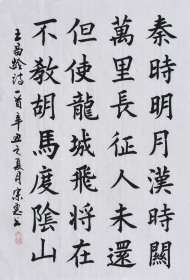 秦時明月漢時關
萬里長征人未還
但使龍城飛將在
不教胡馬度陰山
王昌齡詩一首辛丑之夏月宗忠書